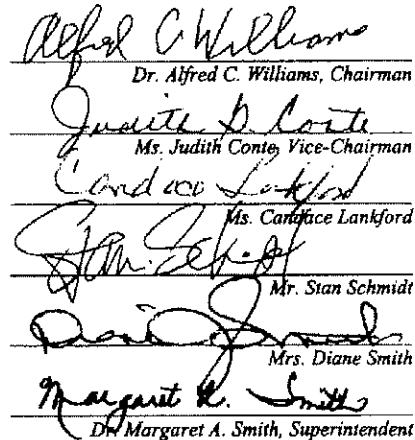 Alfred C Williams
Dr. Alfred C. Williams, Chairman
Judith D. Conte
Ms. Judith Conte, Vice-Chairman
Candace Lankford
Ms. Candace Lankford
Stan Schmidt
Mr. Stan Schmidt
Diane Smith
Mrs. Diane Smith
Margaret A. Smith
Dr. Margaret A. Smith, Superintendent